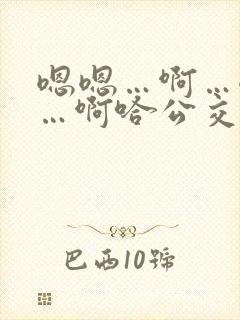 嗯嗯…啊…
…啊啥公交
巴西10號